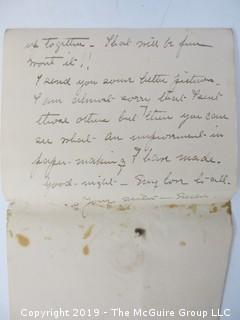 up together - That will be fun
wont it!!
I send you some better pictures.
I am almost sorry that I sent
those others but then you can
see what An improvement in
paper-making I have made.
good-night - my love to all.
Your sister -
Copyright 2019 - The McGuire Group